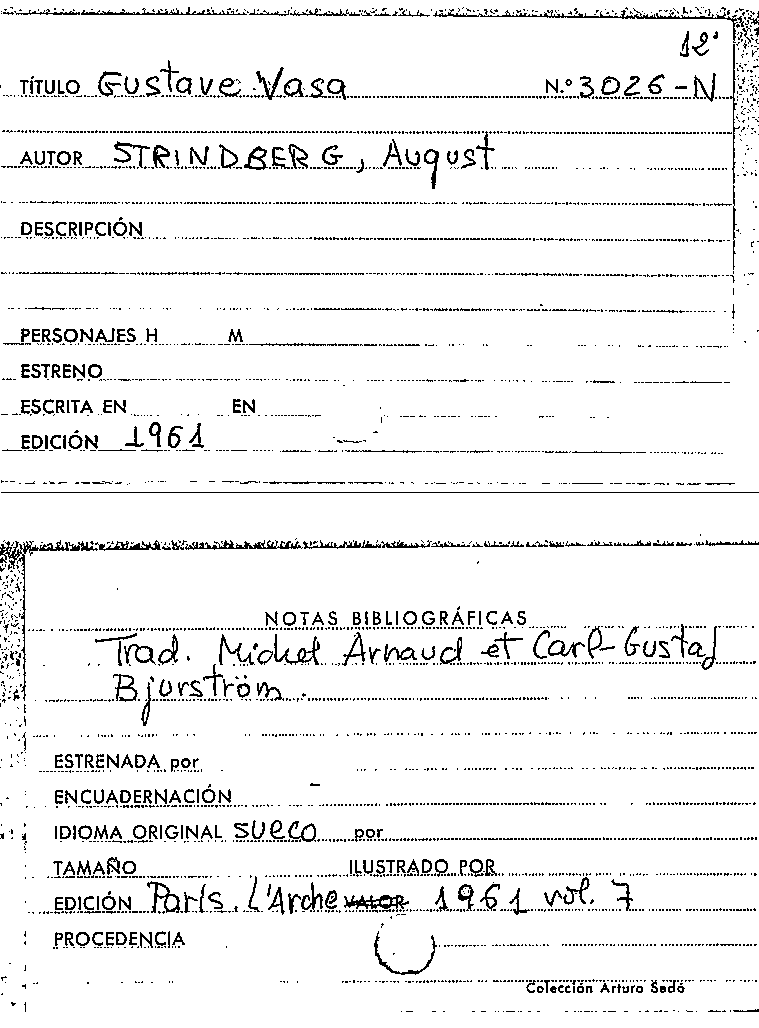 12º
TÍTULO Gustave Vasa N.º 3026-N
AUTOR STRINDBERG, August
DESCRIPCIÓN
PERSONAJES H M
ESTRENO
ESCRITA EN EN
EDICIÓN 1961
NOTAS BIBLIOGRÁFICAS
Trad. Michel Arnaud et Carl-Gustaf
Bjurström.
ESTRENADA por
ENCUADERNACIÓN
IDIOMA ORIGINAL sueco por
TAMAÑO ILUSTRADO POR
EDICIÓN París. L'Arche VALOR 1961 vol. 7
PROCEDENCIA
Colección Arturo Sedó